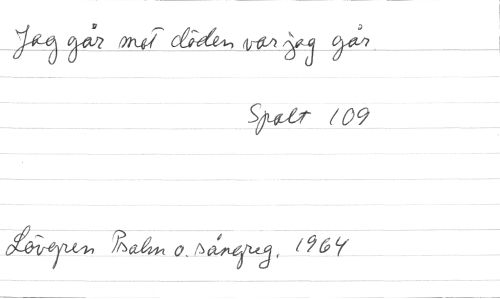 Jag går mot döden var jag går
Spalt 109
Lövgren Psalm o. sångreg. 1964